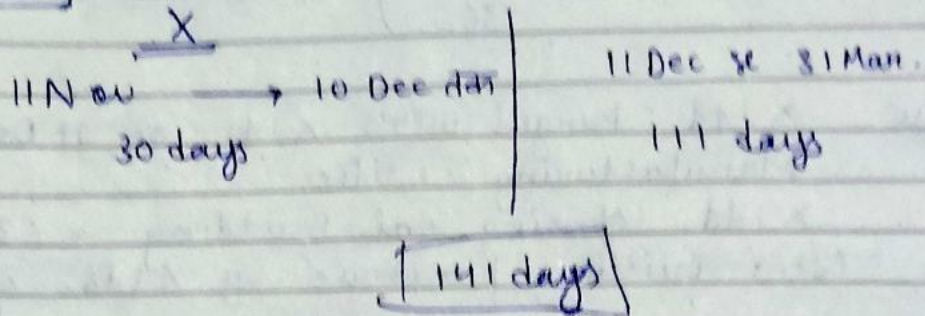 X
11 Nov → 10 Dec तक
30 days
11 Dec se 31 Mar.
111 days
141 days